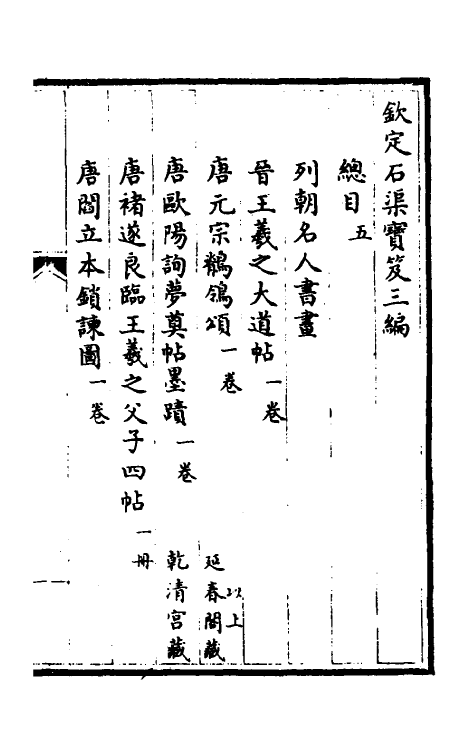 欽定石渠寶笈三編
總目五
列朝名人書畫
晉王羲之大道帖一卷
唐元宗鶺鴒頌一卷 以上延春閣藏
唐歐陽詢夢奠帖墨蹟一卷 乾清宮藏
唐褚遂良臨王羲之父子四帖一冊
唐閻立本鎖諫圖一卷